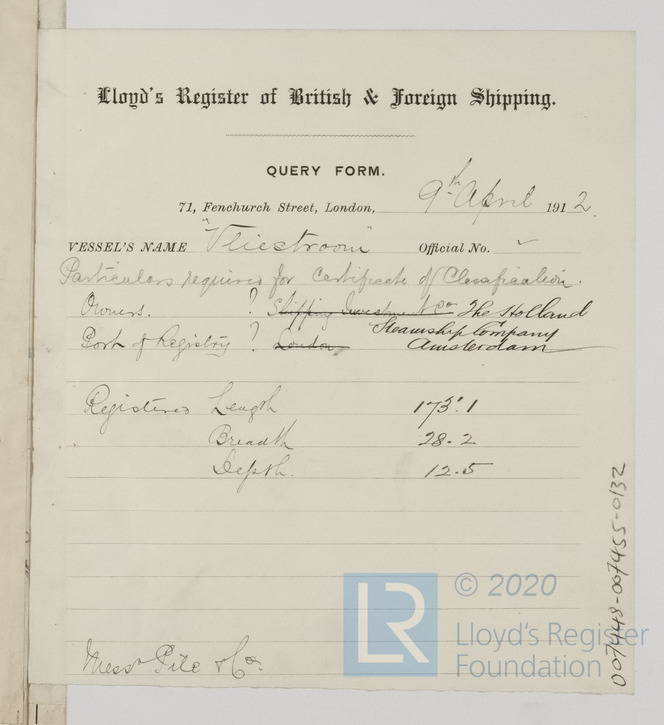 Lloyd's Register of British & Foreign Shipping.
QUERY FORM.
71, Fenchurch Street, London, 9th April 1912.
VESSEL'S NAME "Vliestroom" Official No. ✓
Particulars required for Certificate of Classification.
Owners. ? Shipping Investment Co The Holland
Steamship Company
Port of Registry ? London Amsterdam
Registered Length 173'.1
Breadth 28.2
Depth. 12.5
007448-007455-0132
© 2020
LR
Lloyd's Register
Foundation
Messrs Pile & Co.